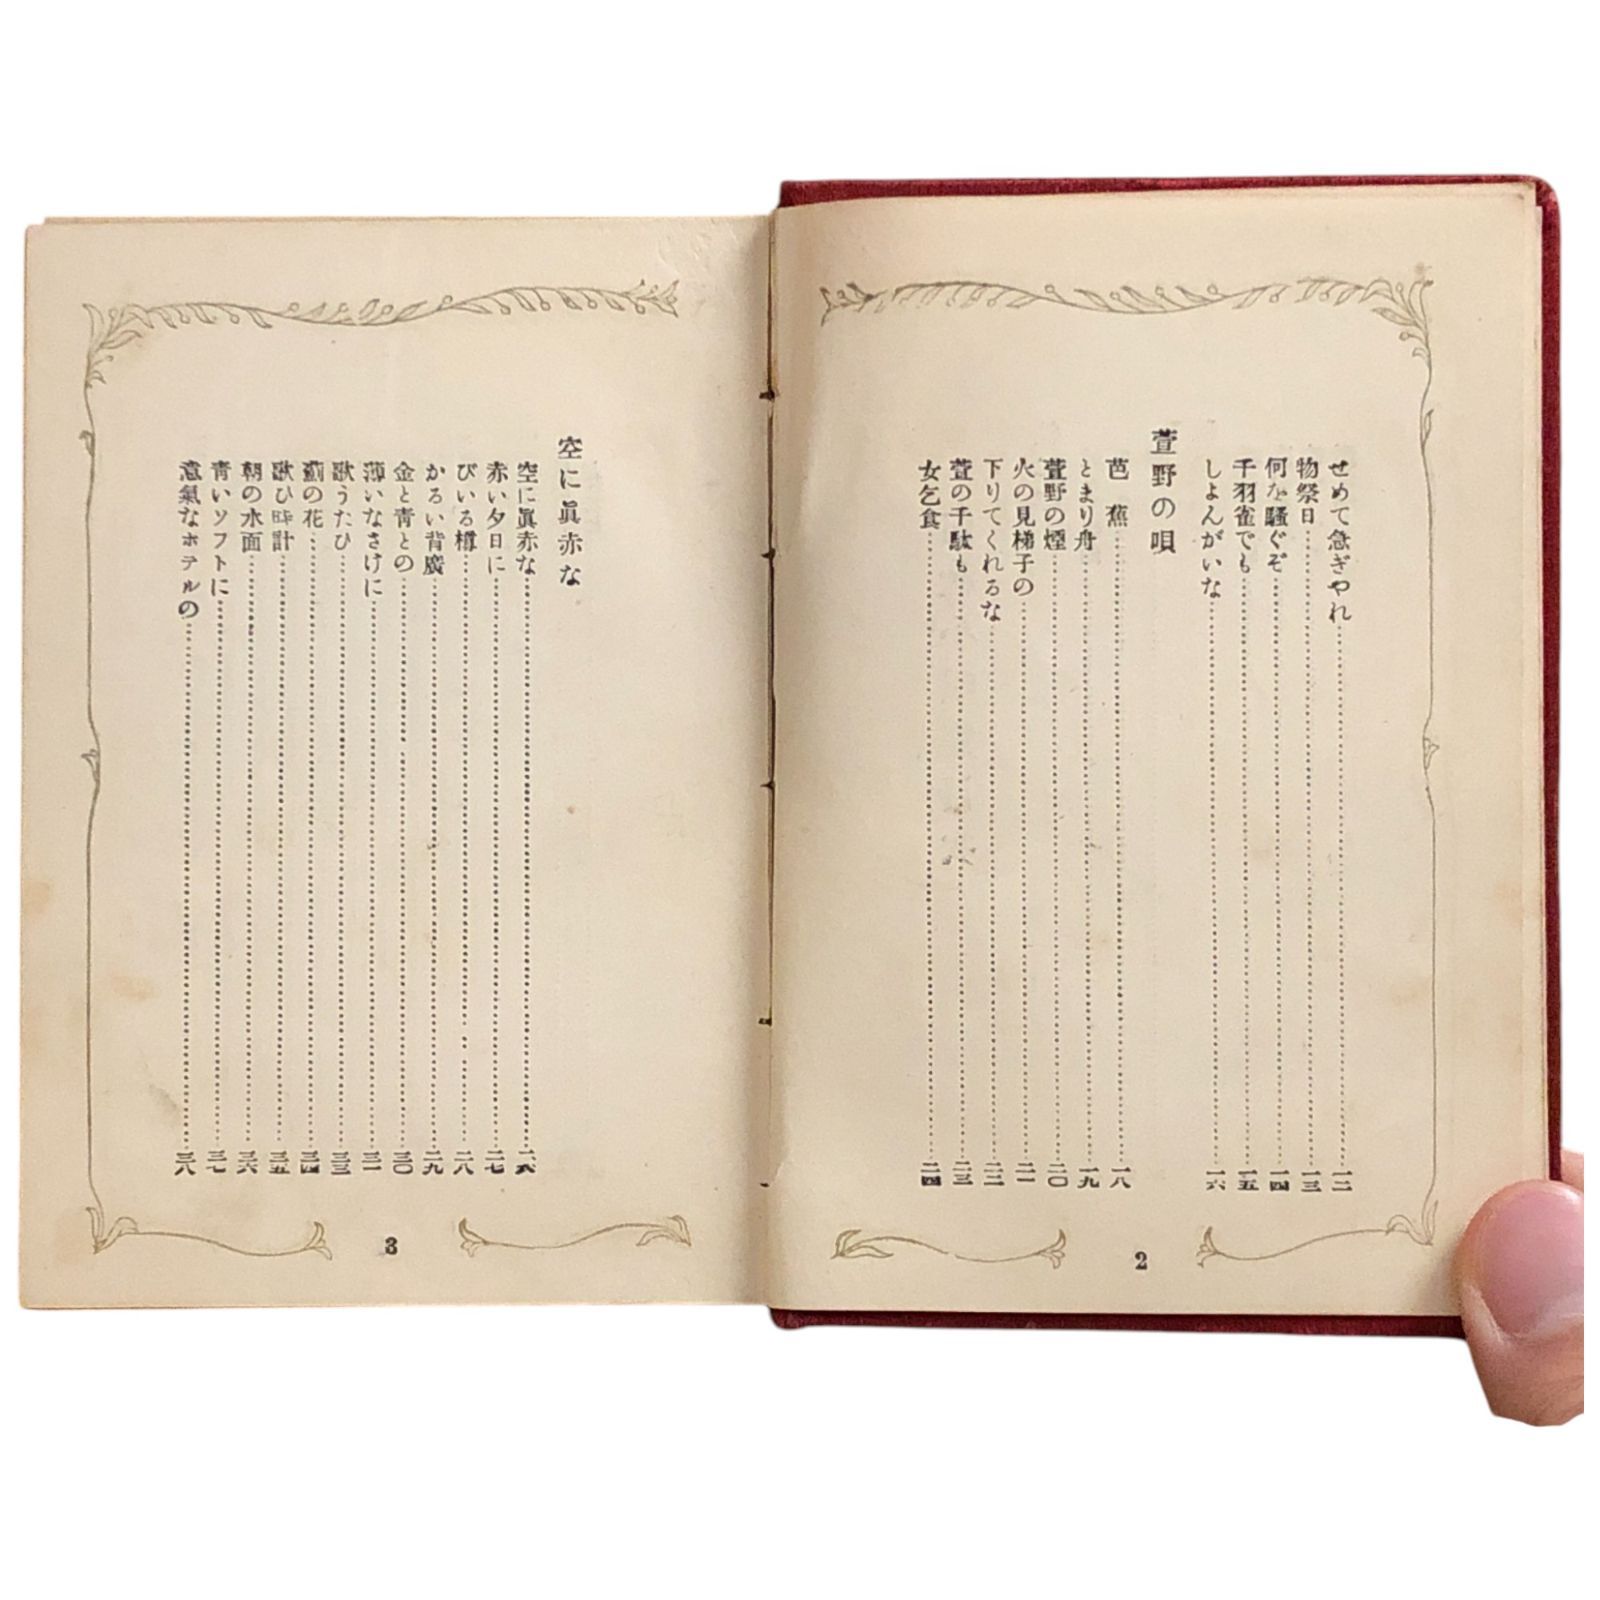 せめて急ぎやれ……一二
物祭日……一三
何を騒ぐぞ……一四
千羽雀でも……一五
しよんがいな……一六
萱野の唄
芭蕉……一八
とまり舟……一九
萱野の煙……二〇
火の見梯子の……二一
下りてくれるな……二二
萱の千駄も……二三
女乞食……二四
2
空に眞赤な
空に眞赤な……二六
赤い夕日に……二七
びいる樽……二八
かるい背廣……二九
金と青との……三〇
薄いなさけに……三一
歌うたひ……三三
薊の花……三四
歌ひ時計……三五
朝の水面……三六
青いソフトに……三七
意氣なホテルの……三八
3